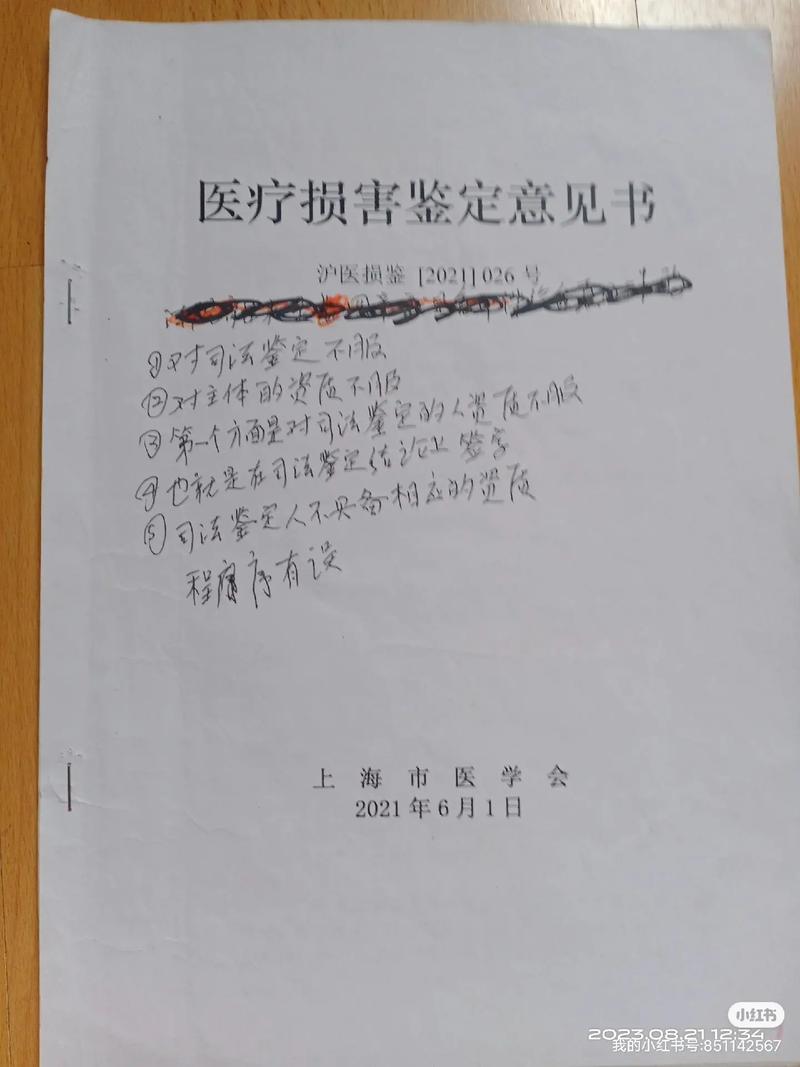 医疗损害鉴定意见书
沪医损鉴 [2021] 026 号
①对司法鉴定不服
②对主体的资质不服
③第一个方面是对司法鉴定的人资质不服
④也就是在司法鉴定结论上签字
⑤司法鉴定人不具备相应的资质
程序有误
上海市医学会
2021年6月1日
小红书
2023.08.21 12:34
我的小红书号:851142567